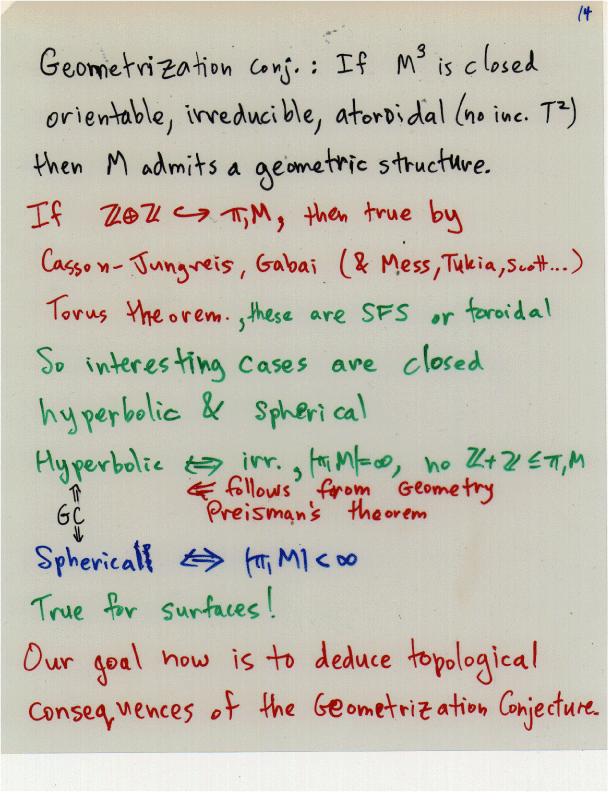 14
Geometrization conj.: If M³ is closed
orientable, irreducible, atoroidal (no inc. T²)
then M admits a geometric structure.
If ℤ⊕ℤ ↪ π₁M, then true by
Casson-Jungreis, Gabai (& Mess, Tukia, Scott...)
Torus theorem., these are SFS or toroidal
So interesting cases are closed
hyperbolic & spherical
Hyperbolic ⇔ irr., |π₁M|=∞, no ℤ+ℤ ≤ π₁M
⇑ ⇐ follows from Geometry
GC Preisman's theorem
⇓
Spherical ⇔ |π₁M| < ∞
True for surfaces!
Our goal now is to deduce topological
consequences of the Geometrization Conjecture.